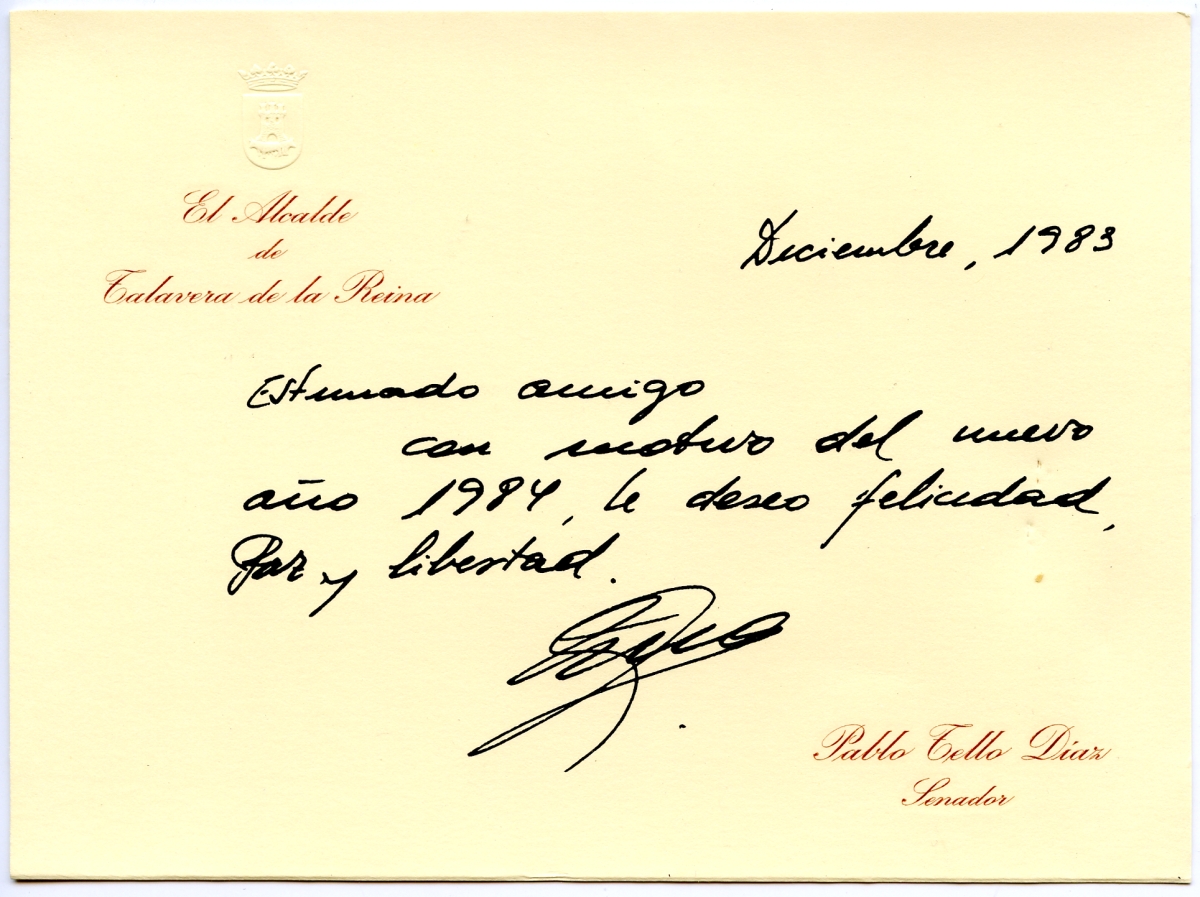 El Alcalde
de
Talavera de la Reina
Diciembre, 1983
Estimado amigo
con motivo del nuevo
año 1984, le deseo felicidad,
Paz y libertad.
Pablo Tello Díaz
Senador